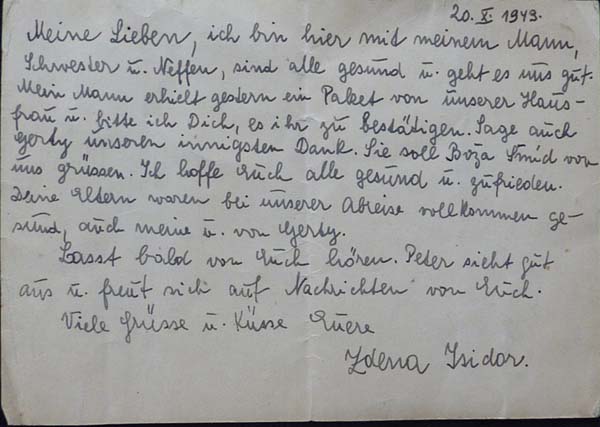 20. X. 1943.
Meine Lieben, ich bin hier mit meinem Mann,
Schwester u. Neffen, sind alle gesund u. geht es uns gut.
Mein Mann erhielt gestern ein Paket von unserer Haus-
frau u. bitte ich Dich, es ihr zu bestätigen. Sage auch
Gerty unseren innigsten Dank. Sie soll Boža Šmíd von
uns grüssen. Ich hoffe Euch alle gesund u. zufrieden.
Deine Eltern waren bei unserer Abreise vollkommen ge-
sund, auch meine u. von Gerty.
Lasst bald von Euch hören. Peter sieht gut
aus u. freut sich auf Nachrichten von Euch.
Viele Grüsse u. Küsse Euere
Zdena Isidor.